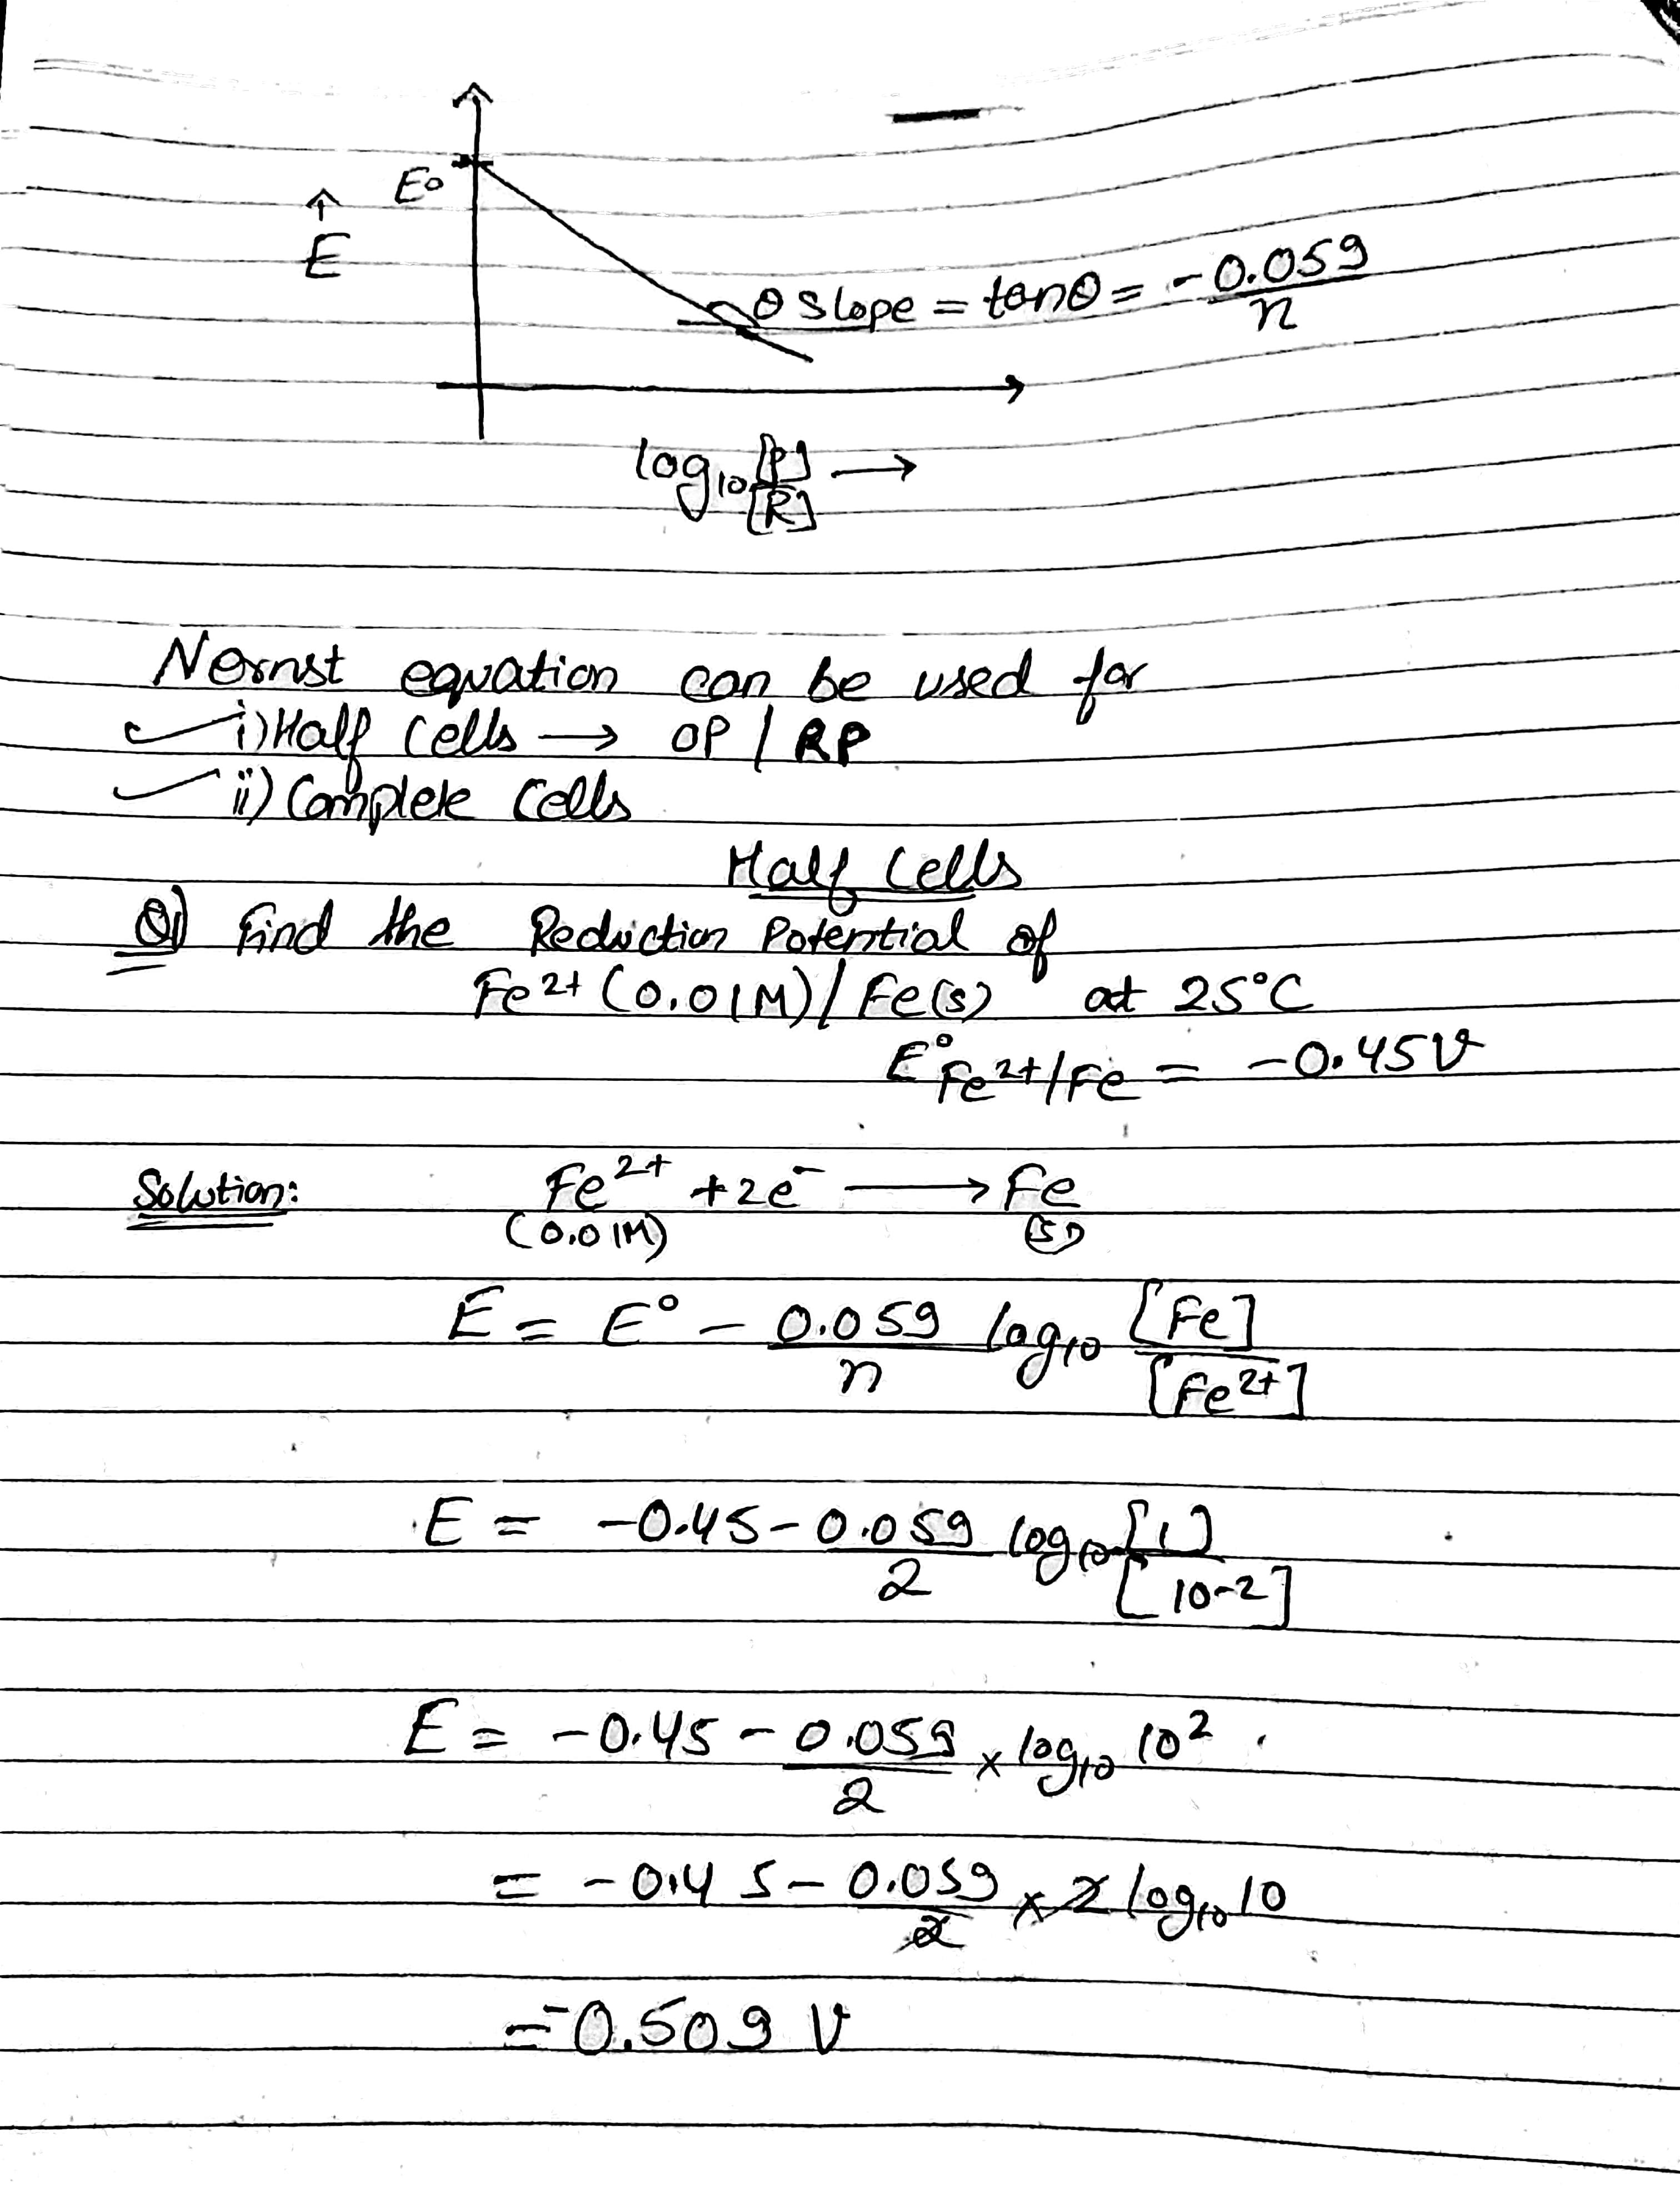 E°
↑
E
θ slope = tanθ = -0.059/n
log₁₀ [P]/[R] →
Nernst equation can be used for
i) Half Cells → OP / RP
ii) Complete Cells
Half Cells
Q1) Find the Reduction Potential of
Fe²⁺ (0.01M) / Fe(s) at 25°C
E°Fe²⁺/Fe = -0.45V
Solution: Fe²⁺ + 2e⁻ → Fe
(0.01M) (s)
E = E° - 0.059/n log₁₀ [Fe]/[Fe²⁺]
E = -0.45 - 0.059/2 log₁₀ [1]/[10-2]
E = -0.45 - 0.059/2 × log₁₀ 10²
= -0.45 - 0.059/2 × 2 log₁₀ 10
= -0.509 V